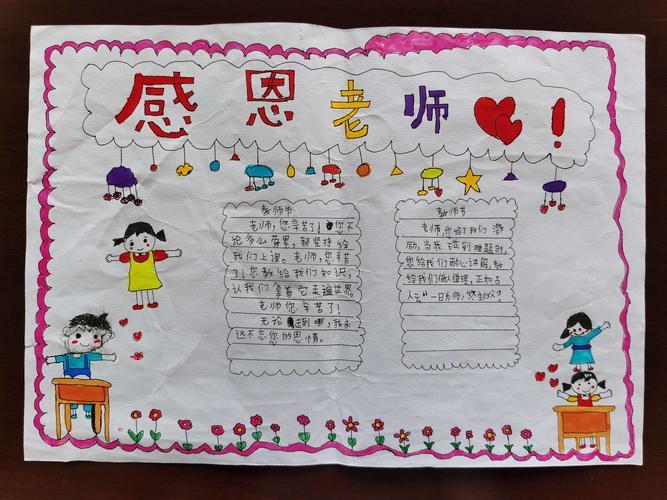 感恩老师!
教师节
老师,您辛苦了!您不
论多么劳累,都坚持给
我们上课。老师,您辛苦
了!您教给我们知识,
认我们拿着它走遍世界。
老师您辛苦了!
无论走到哪,我永
远不忘您的恩情。
教师节
老师,您给了我们激
励,当我碰到难题时,
您给我们耐心讲解,教
给我们做人道理,正如古
人云"一日为师,终生